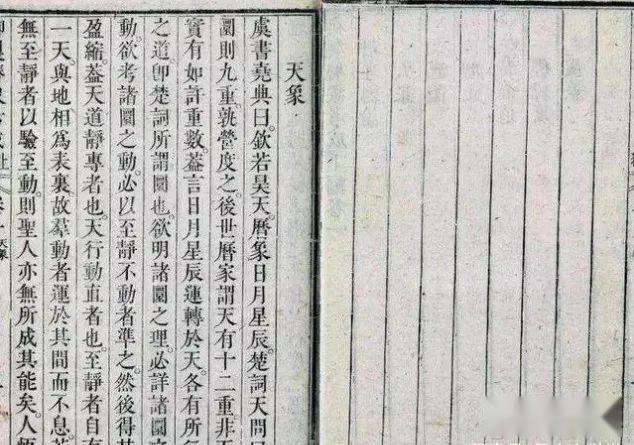 天象
虞書堯典曰。欽若昊天。曆象日月星辰。楚詞天問曰
圜則九重。孰營度之。後世曆家謂天有十二重。非
實有如許重數。葢言日月星辰運轉於天。各有所
之道。卽楚詞所謂圜也。欲明諸圜之理。必詳諸圜
動。欲考諸圜之動。必以至靜不動者準之。然後得其
盈縮。葢天道靜專者也。天行動直者也。至靜者自有
一天。與地相爲表裏。故羣動者運於其間而不息。若
無至靜者以驗至動。則聖人亦無所成其能矣。人
天象